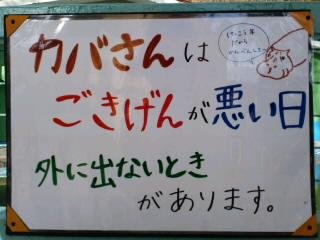 カバさんは
ごきげんが悪い日
外に出ないとき
があります。